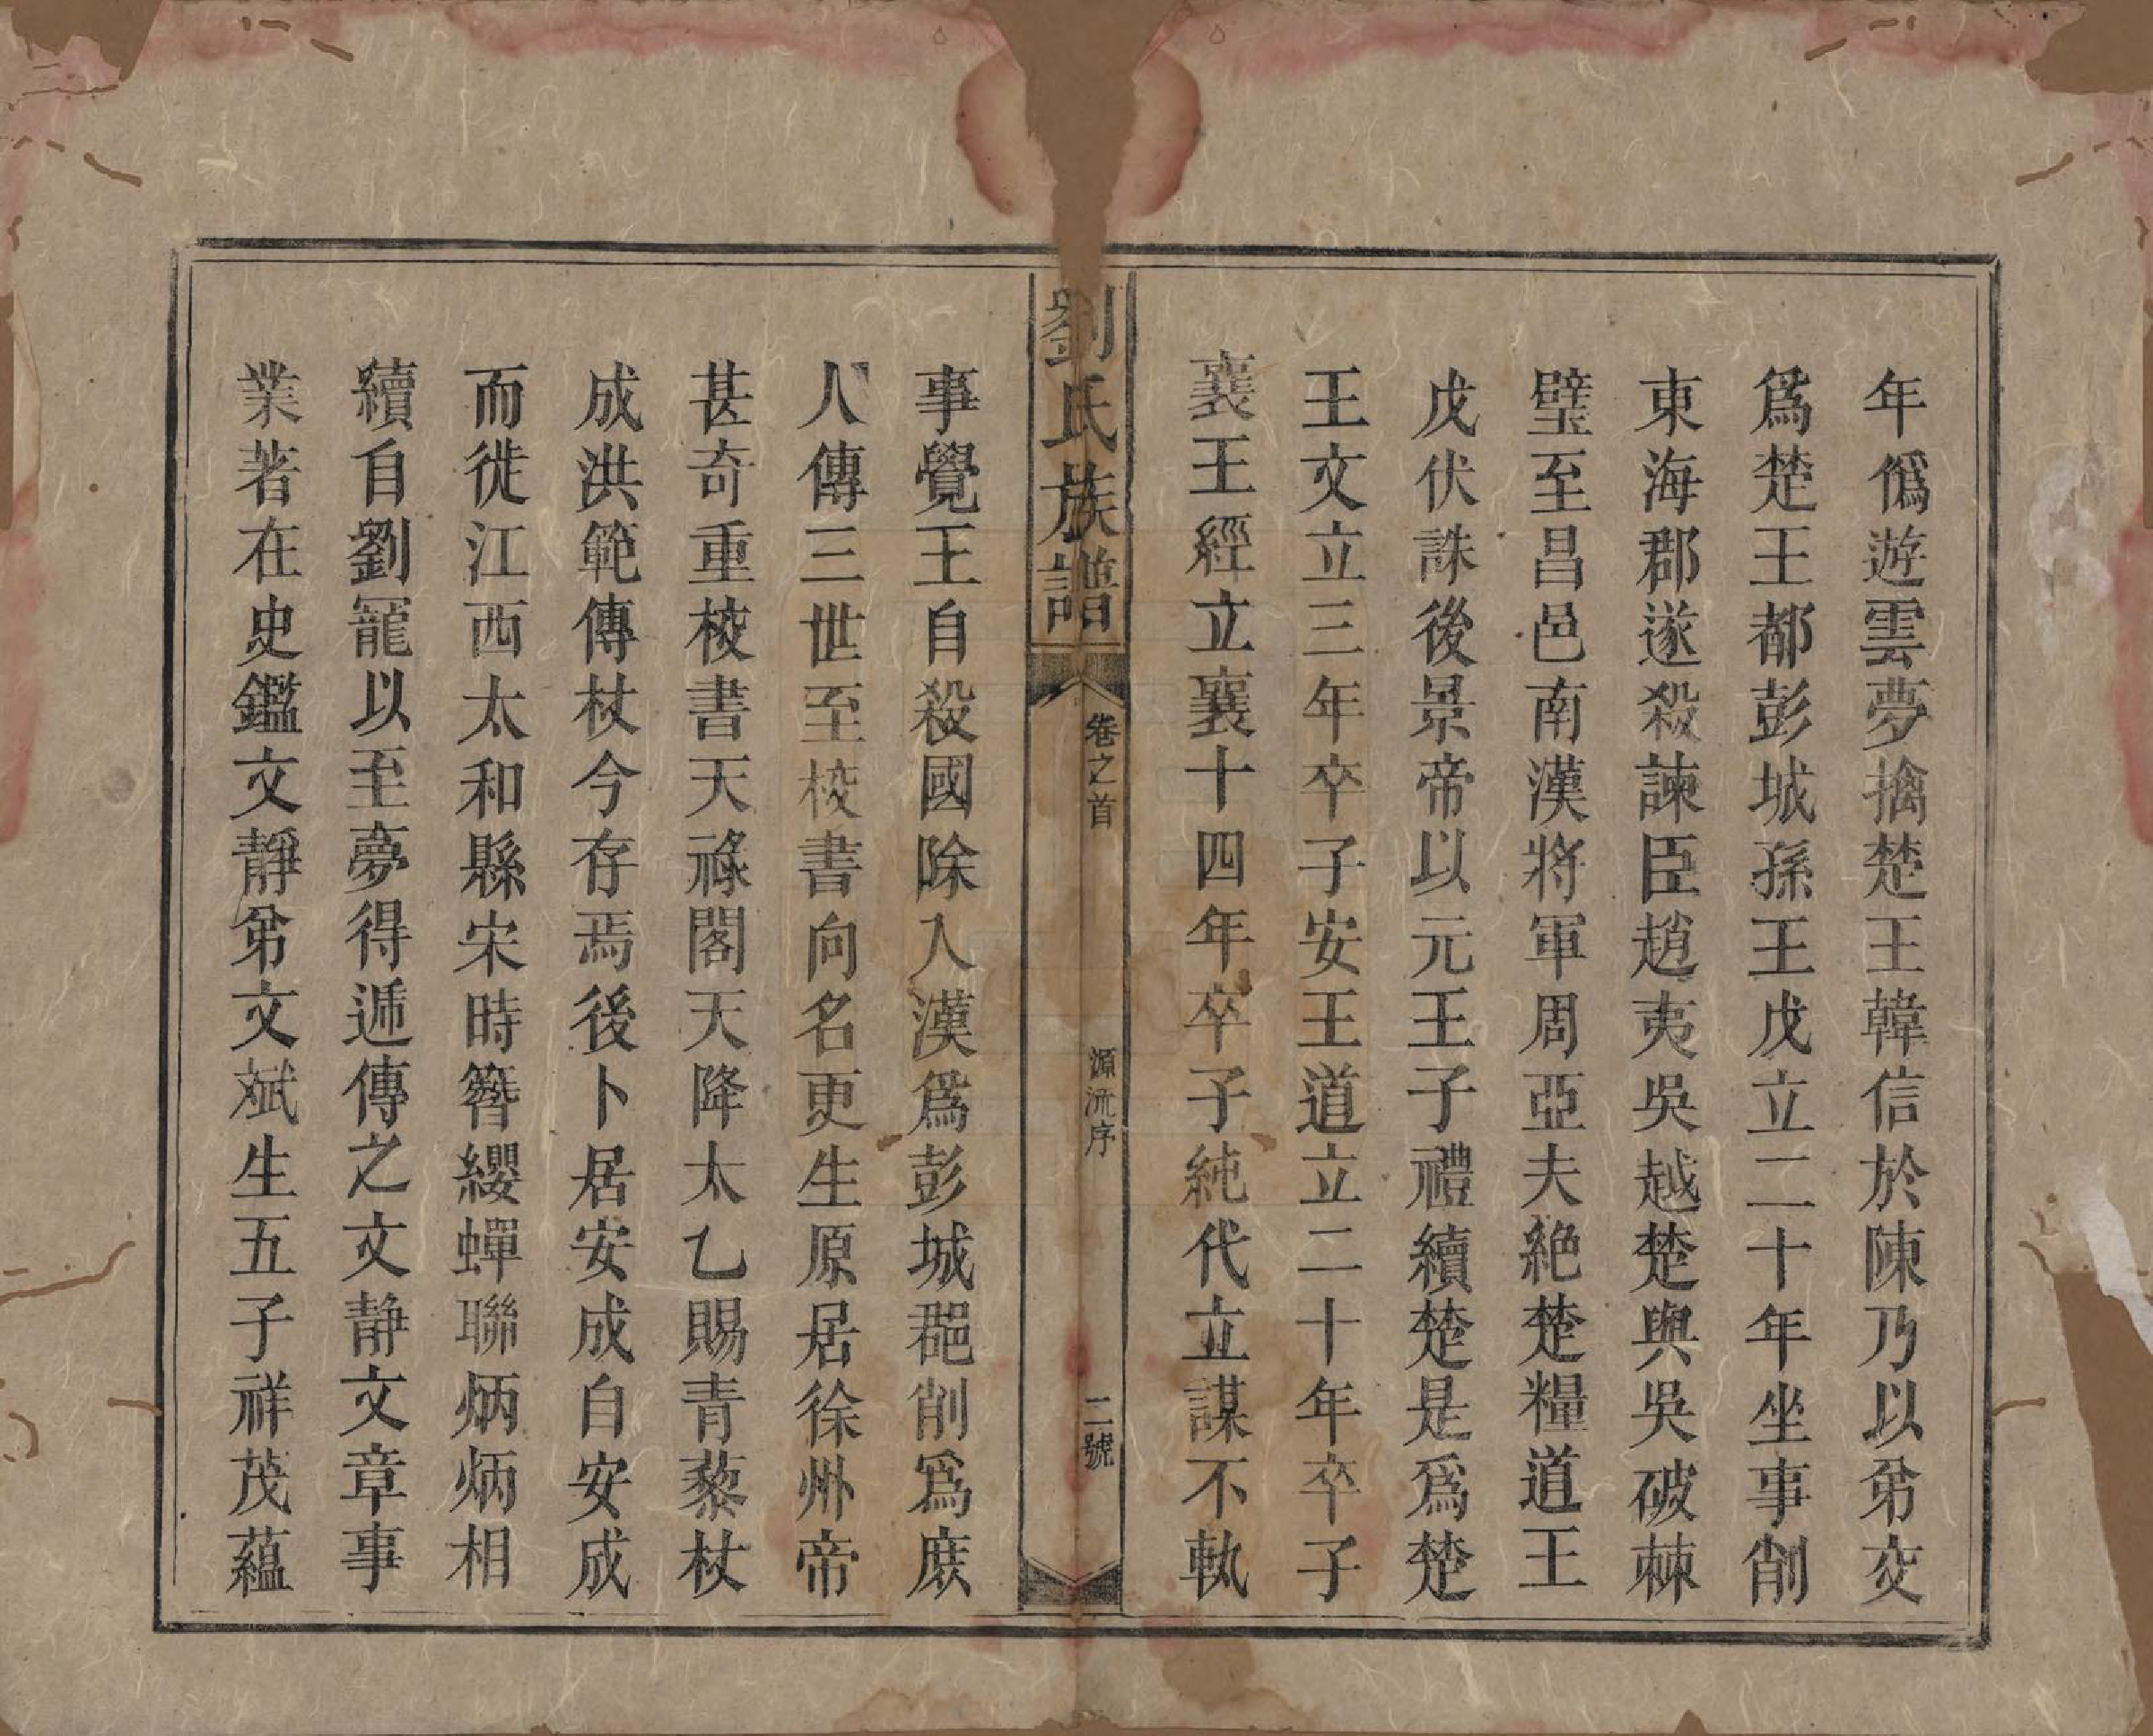 年僞遊雲夢擒楚王韓信於陳乃以弟交
爲楚王都彭城孫王戊立二十年坐事削
東海郡遂殺諫臣趙夷吳越楚與吳破棘
璧至昌邑南漢將軍周亞夫絶楚糧道王
戊伏誅後景帝以元王子禮續楚是爲楚
王文立三年卒子安王道立二十年卒子
襄王經立襄十四年卒子純代立謀不軌
劉氏族譜
卷之首
源流序
二號
事覺王自殺國除入漢爲彭城郡削爲庶
人傳三世至校書向名更生原居徐州帝
甚奇重校書天祿閣天降太乙賜青藜杖
成洪範傳杖今存焉後卜居安成自安成
而徙江西太和縣宋時簪纓蟬聯炳炳相
續自劉寵以至夢得遞傳之文靜文章事
業著在史鑑文靜弟文斌生五子祥茂蘊